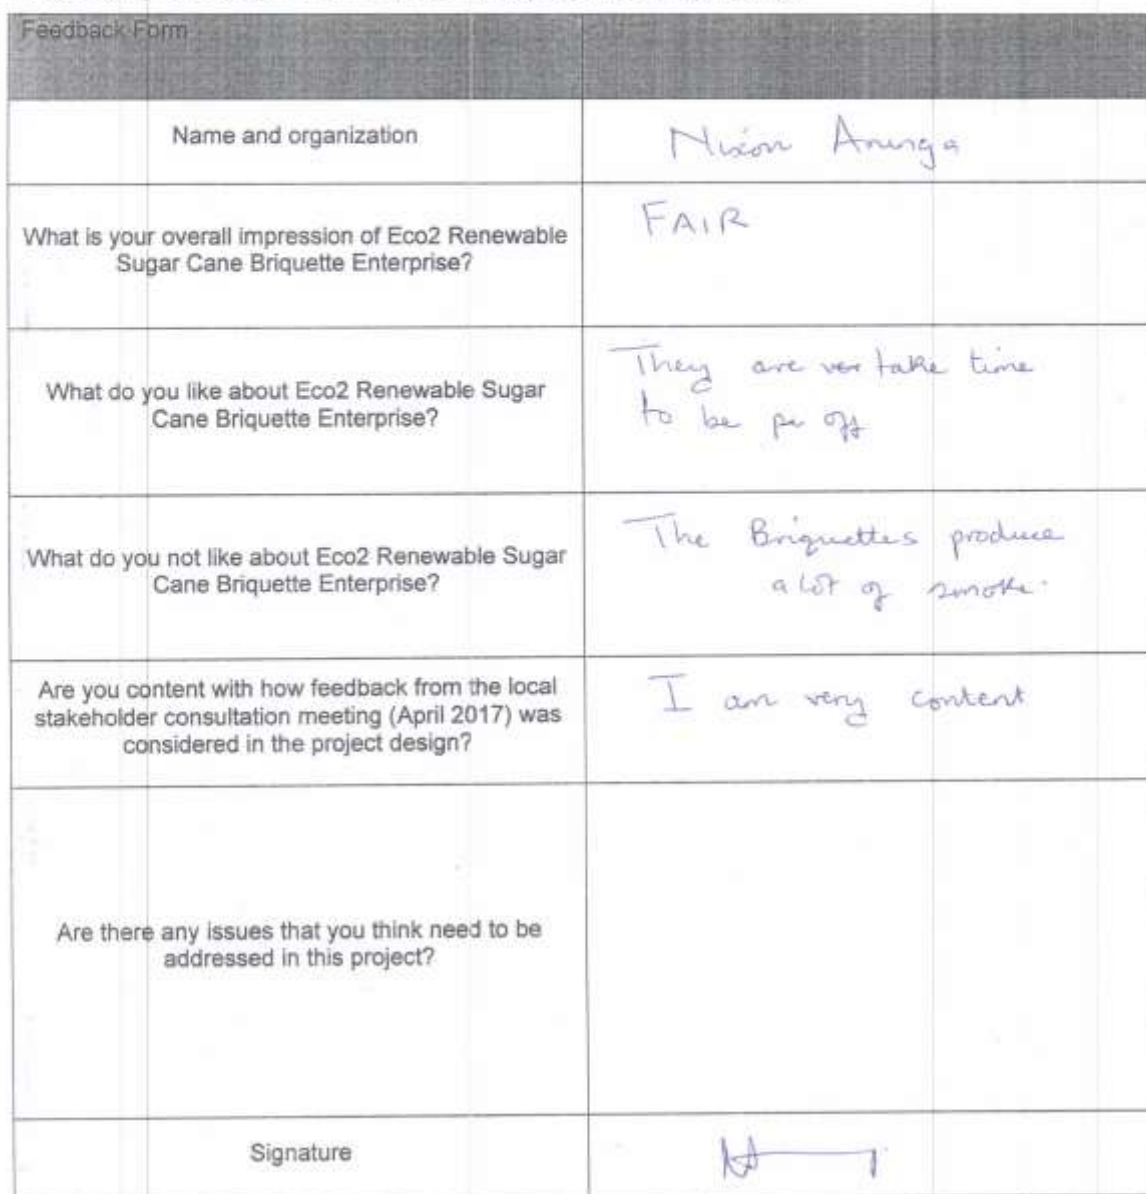 Feedback Form
Name and organization
Nixon Anunga
What is your overall impression of Eco2 Renewable
Sugar Cane Briquette Enterprise?
FAIR
What do you like about Eco2 Renewable Sugar
Cane Briquette Enterprise?
They are ver take time
to be pe off
What do you not like about Eco2 Renewable Sugar
Cane Briquette Enterprise?
The Briquettes produce
a lot of smoke.
Are you content with how feedback from the local
stakeholder consultation meeting (April 2017) was
considered in the project design?
I am very content
Are there any issues that you think need to be
addressed in this project?
Signature